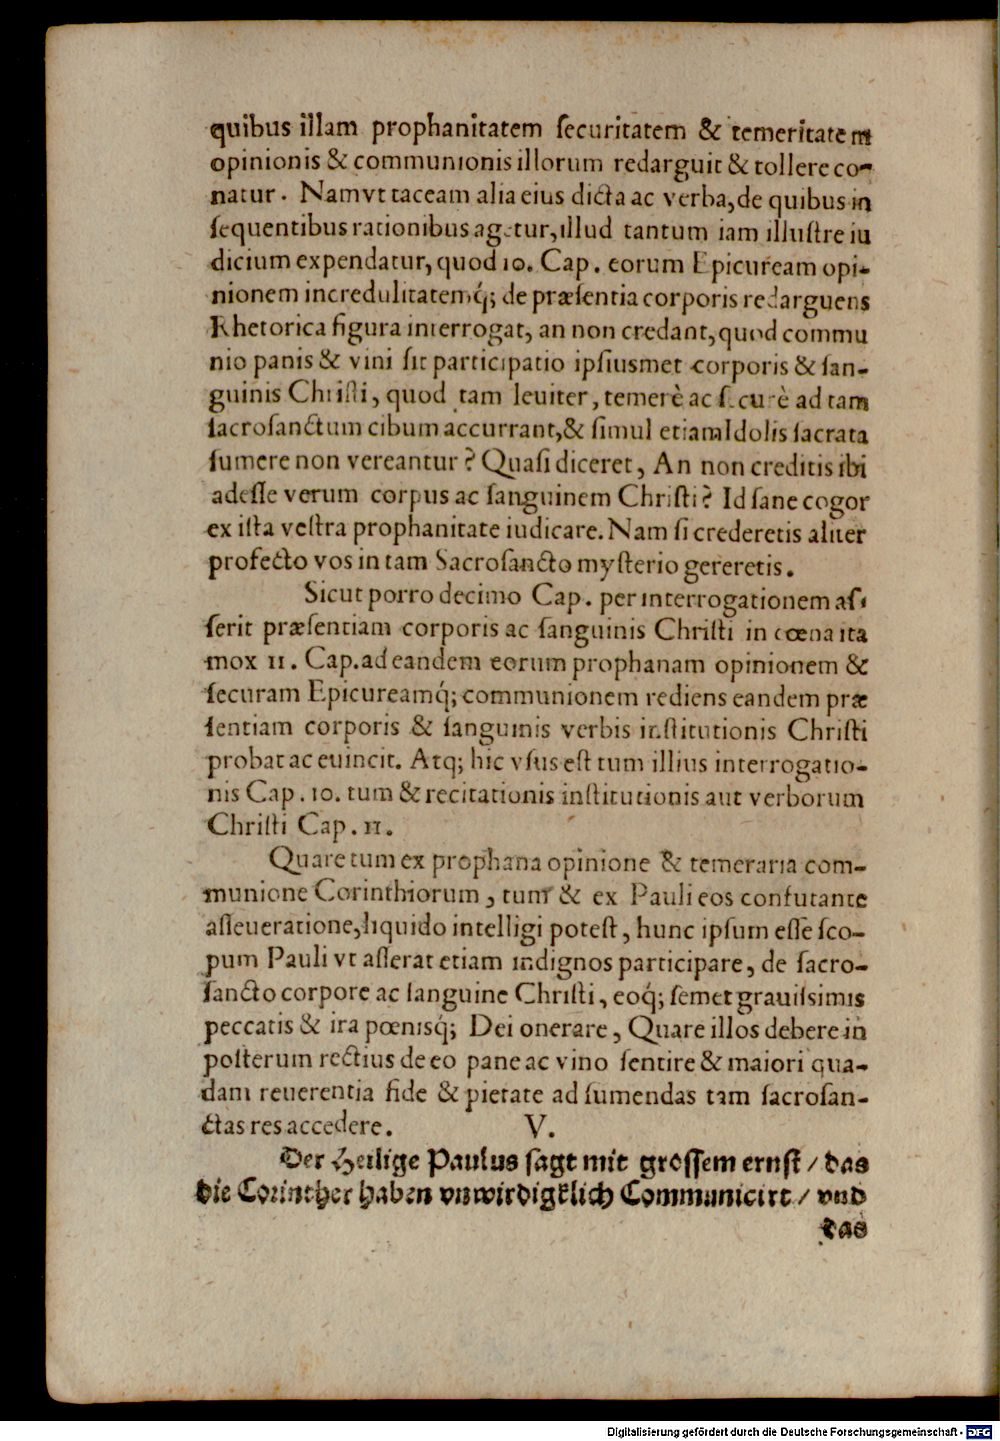 quibus illam prophanitatem ſecuritatem & temeritatem
opinionis & communionis illorum redarguit & tollere co-
natur. Nam vt taceam alia eius dicta ac verba, de quibus in
ſequentibus rationibus agetur, illud tantum iam illuſtre iu
dicium expendatur, quod 10. Cap. eorum Epicuream opi-
nionem incredulitatemq́; de præſentia corporis redarguens
Rhetorica figura interrogat, an non credant, quod commu
nio panis & vini ſit participatio ipſiusmet corporis & ſan-
guinis Chriſti, quod tam leuiter, temerè ac ſecurè ad tam
ſacroſanctum cibum accurrant, & ſimul etiam Idolis ſacrata
ſumere non vereantur? Quaſi diceret, An non creditis ibi
adeſſe verum corpus ac ſanguinem Chriſti? Id ſane cogor
ex iſta veſtra prophanitate iudicare. Nam ſi crederetis aliter
profecto vos in tam Sacroſancto myſterio gereretis.
Sicut porro decimo Cap. per interrogationem aſ-
ſerit præſentiam corporis ac ſanguinis Chriſti in cœna ita
mox 11. Cap. ad eandem eorum prophanam opinionem &
ſecuram Epicureamq́; communionem rediens eandem præ
ſentiam corporis & ſanguinis verbis inſtitutionis Chriſti
probat ac euincit. Atq; hic vſus eſt tum illius interrogatio-
nis Cap. 10. tum & recitationis inſtitutionis aut verborum
Chriſti Cap. 11.
Quare tum ex prophana opinione & temeraria com-
munione Corinthiorum, tum & ex Pauli eos confutante
aſſeueratione, liquido intelligi poteſt, hunc ipſum eſſe ſco-
pum Pauli vt aſſerat etiam indignos participare, de ſacro-
ſancto corpore ac ſanguine Chriſti, eoq́; ſemet grauiſsimis
peccatis & ira pœnisq́; Dei onerare, Quare illos debere in
poſterum rectius de eo pane ac vino ſentire & maiori qua-
dam reuerentia fide & pietate ad ſumendas tam ſacroſan-
ctas res accedere. V.
Der Heilige Paulus ſagt mit groſſem ernſt / das
die Corinther haben vnwirdigklich Communicirt / vnd
das
Digitalisierung gefördert durch die Deutsche Forschungsgemeinschaft - DFG